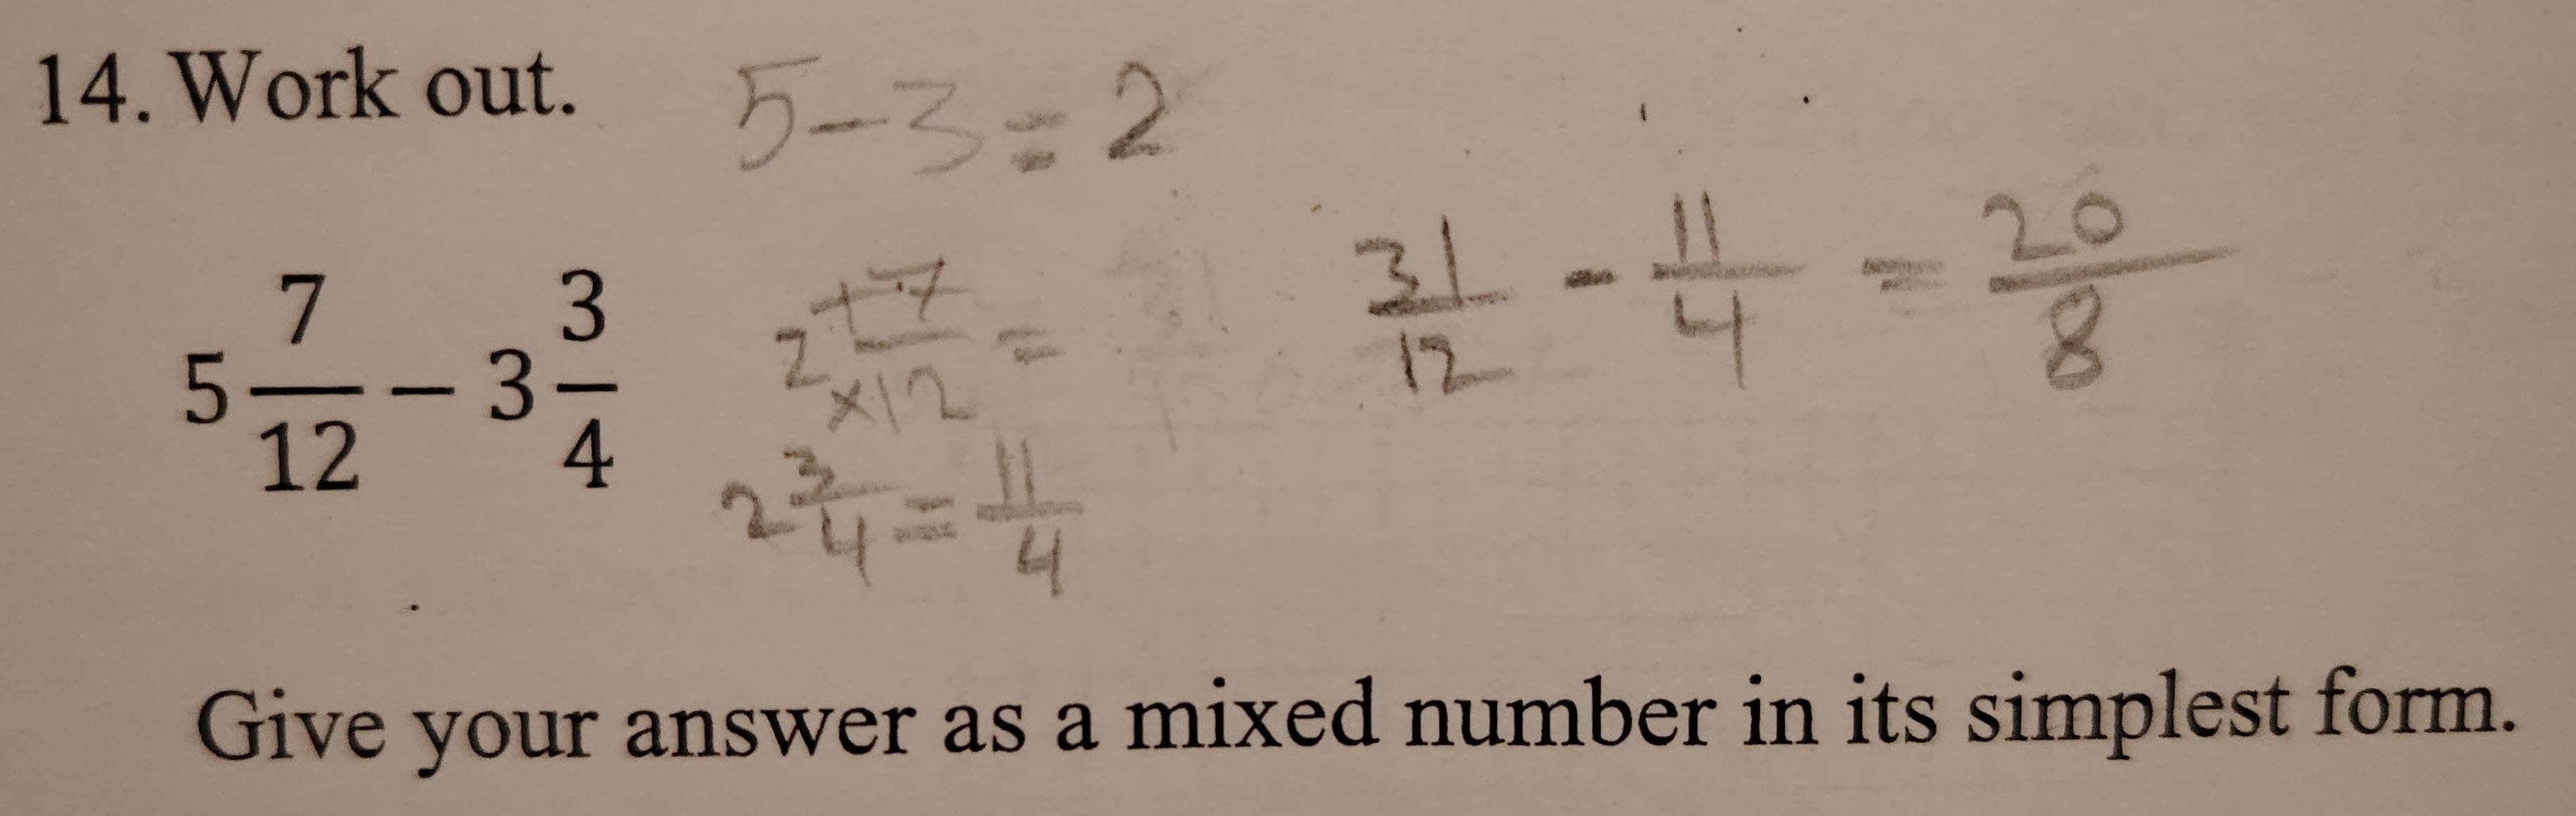 14. Work out.
5 - 3 = 2
5 7/12 - 3 3/4
2 +7/×12 =
31/12 - 11/4 = 20/8
2 3/4 = 11/4
Give your answer as a mixed number in its simplest form.